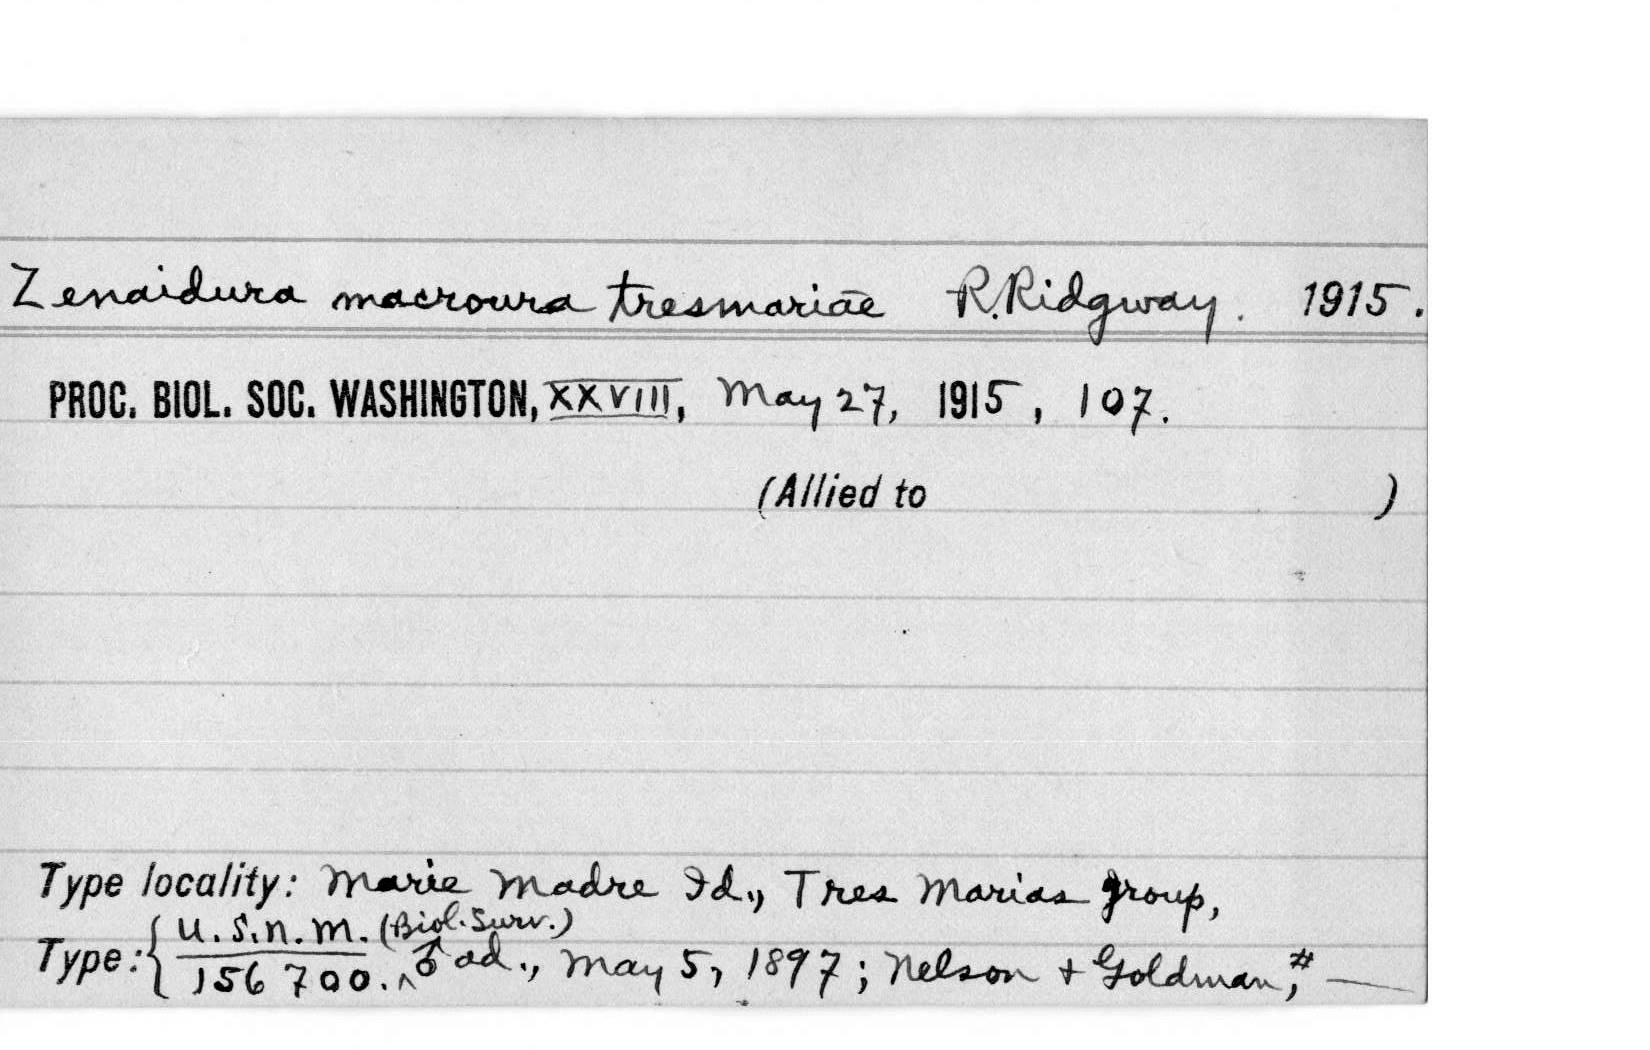 Zenaidura macroura tresmariae R. Ridgway. 1915.
PROC. BIOL. SOC. WASHINGTON, XXVIII, May 27, 1915, 107.
(Allied to )
Type locality: Marie Madre Id., Tres Marias group,
U.S.N.M. (Biol. Surv.)
Type: { 156700. ^ ♂ ad., May 5, 1897; Nelson + Goldman, # —